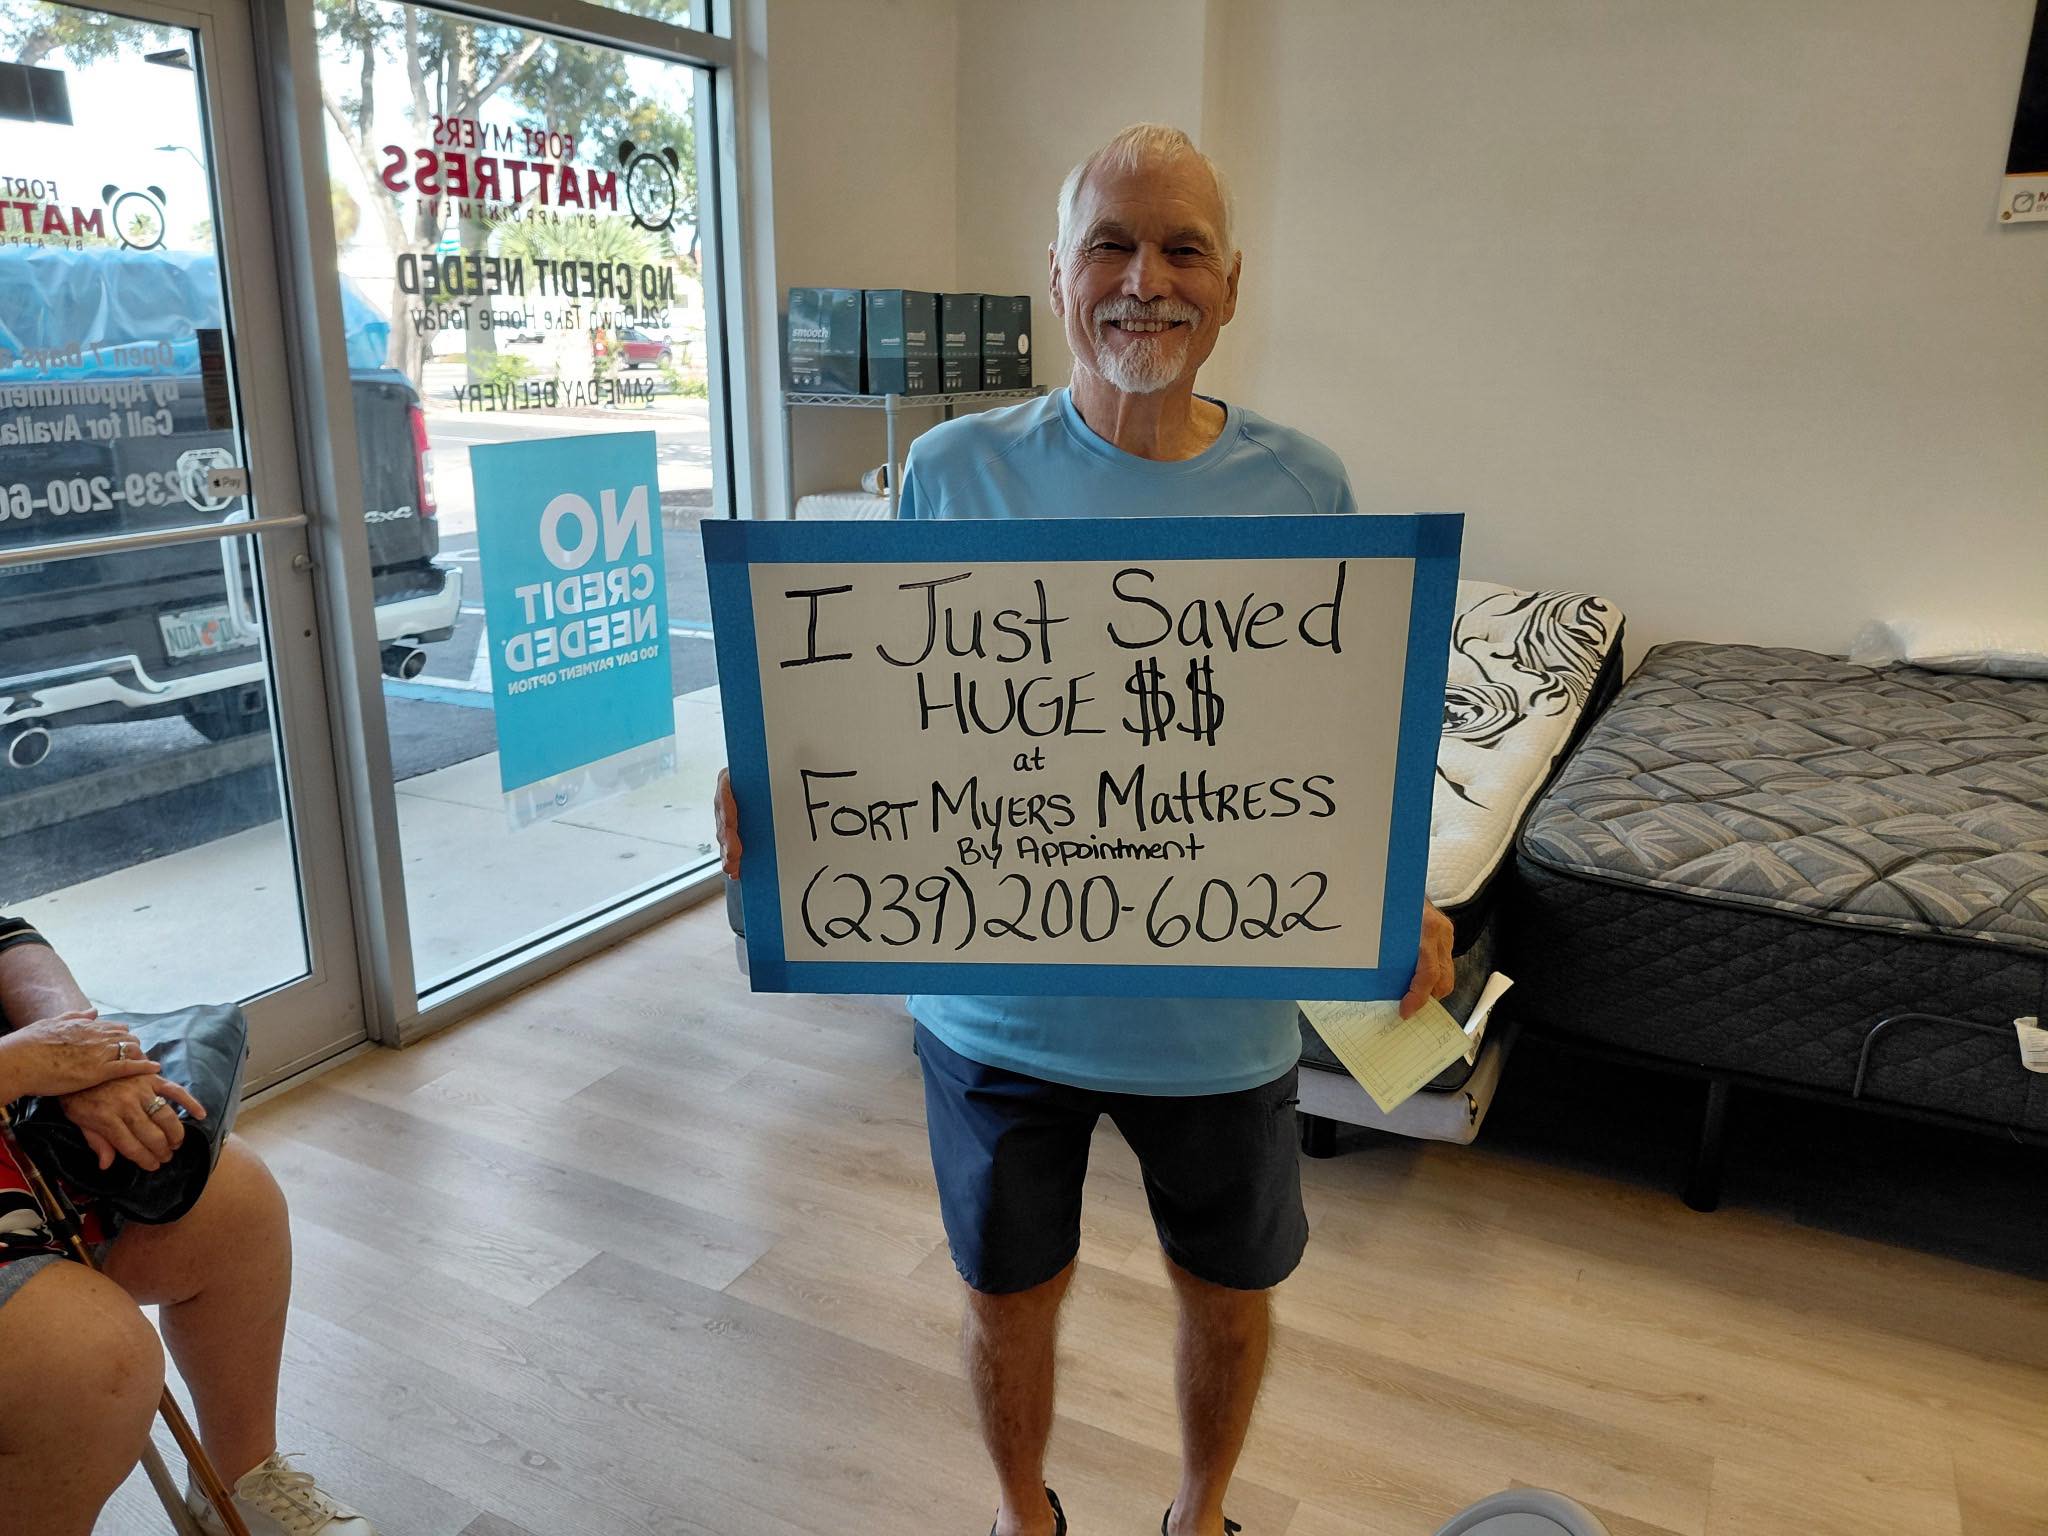 FORT MYERS
MATTRESS
BY APPOINTMENT
NO CREDIT NEEDED
$20 Down Take Home Today
SAME DAY DELIVERY
FORT
MATT
BY APPO
Open 7 Days
by Appointmen
Call for Availa
239-200-60
Pay
4x4
NO
CREDIT
NEEDED
100 DAY PAYMENT OPTION
smooth
smooth
smooth
smooth
I Just Saved
HUGE $$
at
FORT MYERS MattRESS
By Appointment
(239)200-6022